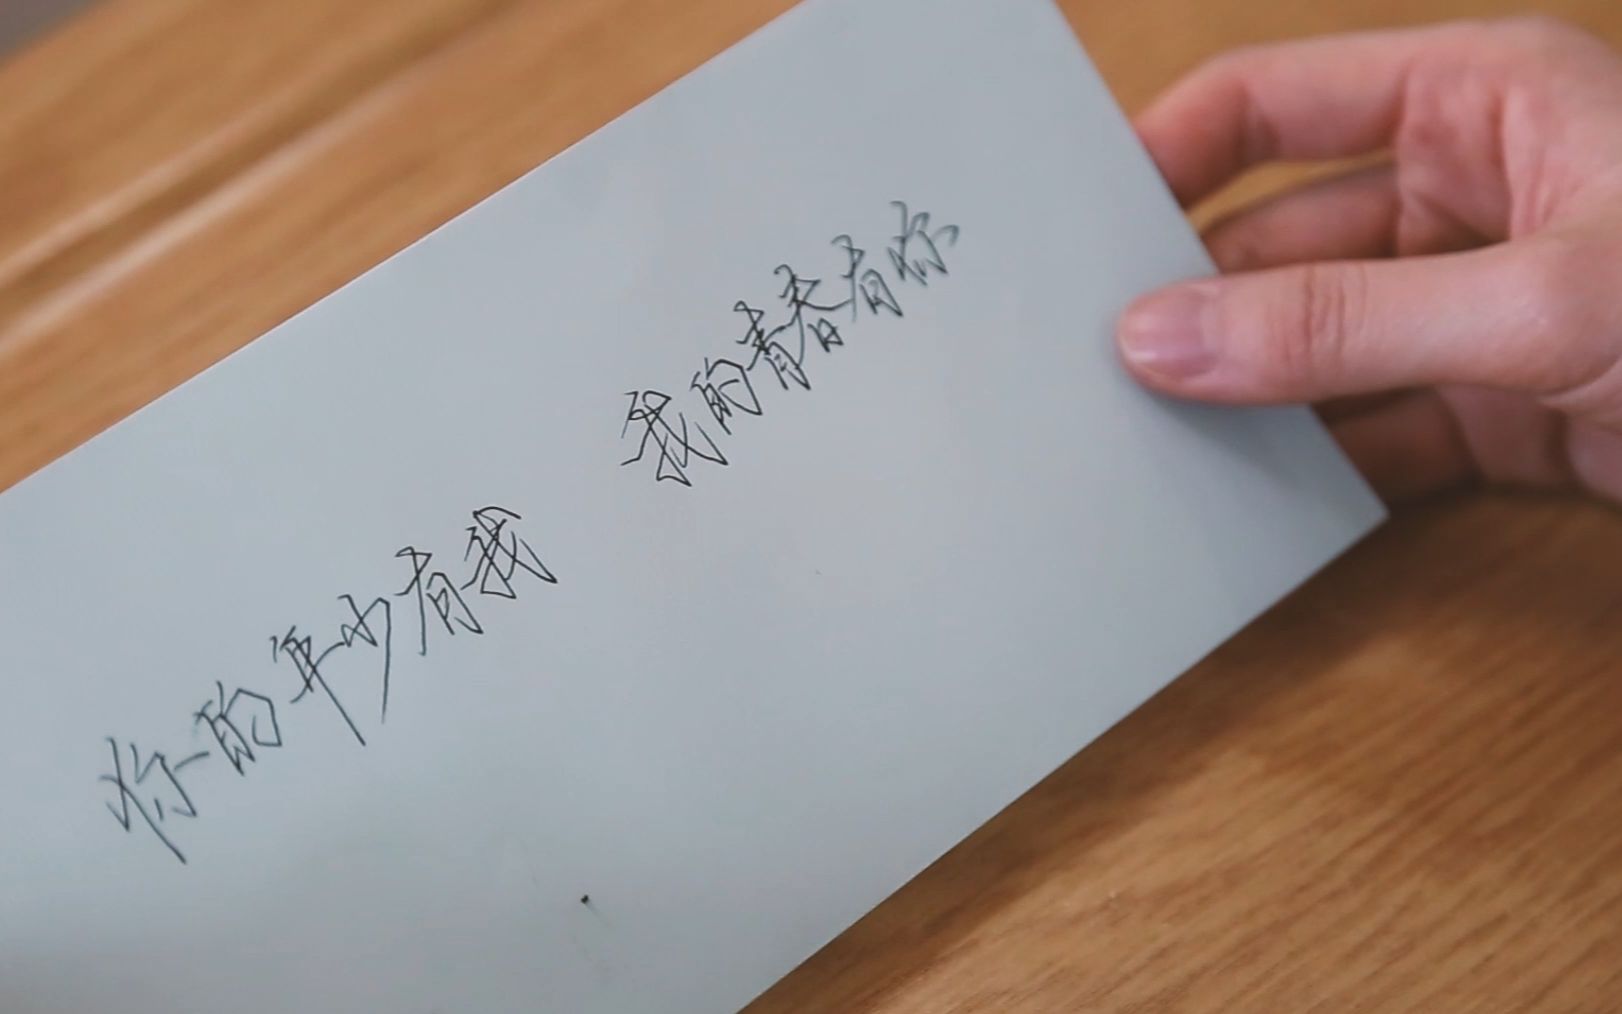 你的年少有我 我的青春有你